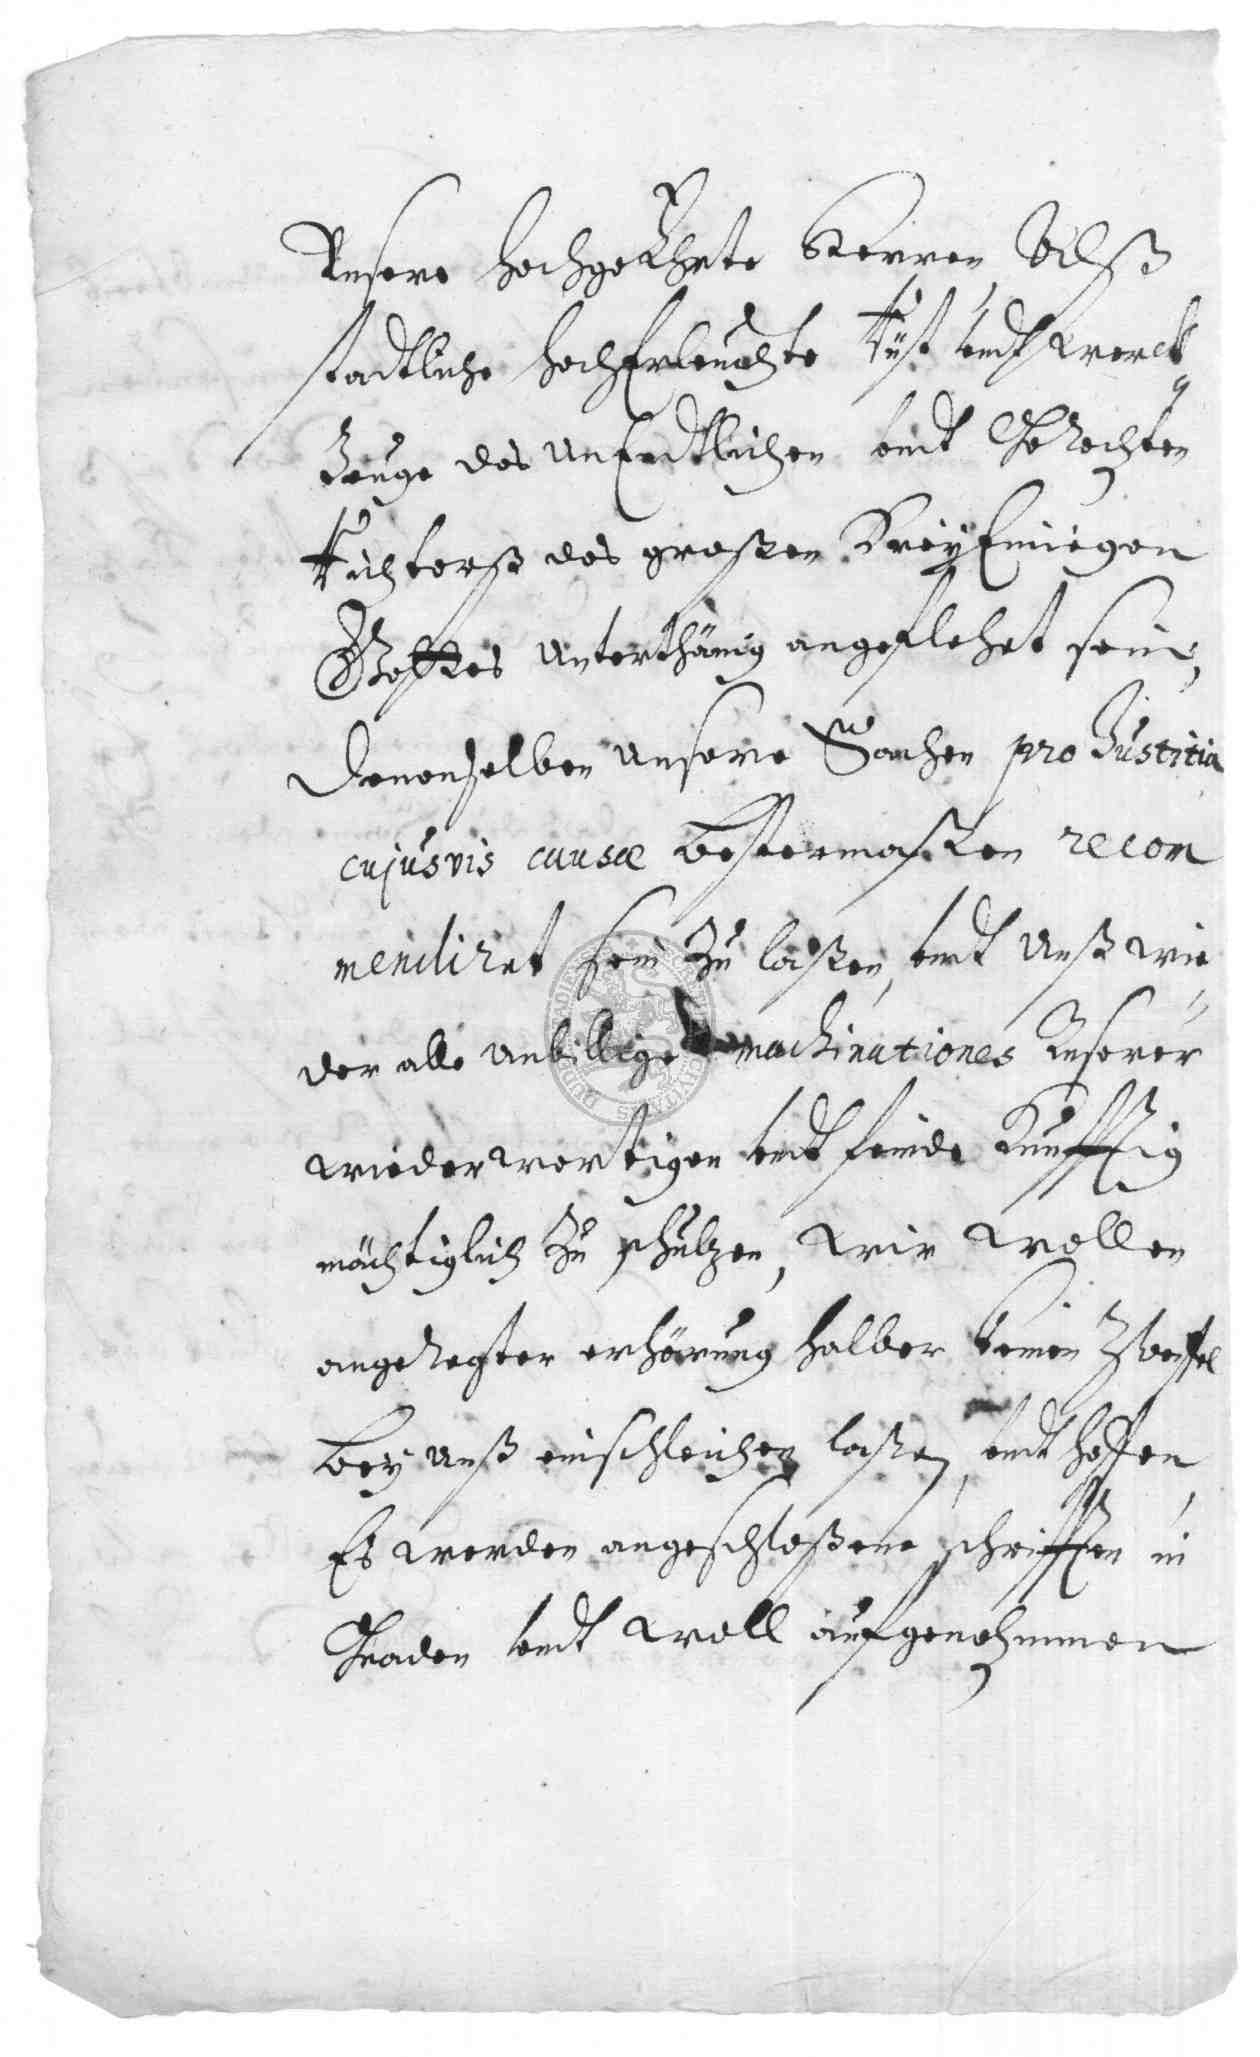 Unsere hochgeEhrte Herren, Alß
stadtliche hochErleuchte Rüst undt Werck
Zeuge des UnEndtlichen undt Gerechten
Richterß des großen DreyEinigen
Gottes unterthänig angeflehet sein,
Denenselben unsere Sachen pro Justitia
cujusvis causæ bestermaßen recom
mendiret sein zu laßen, undt Unß wie
der alle unbillige machinationes Unserer
wiederwertigen undt feinde Künfftig
mächtiglich zu schützen, Wir wollen
angeregter erhörung halber keinen Zweifel
bey unß einschleichen laßen, undt hoffen,
Es werden angeschloßene schrifften in
Gnaden undt woll aufgenohmmen